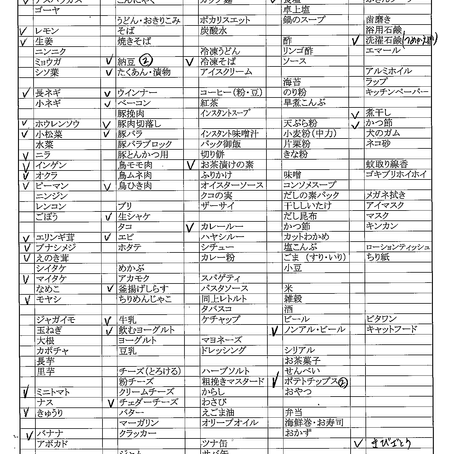 ゴーヤ 卓上塩
うどん・おきりこみ ポカリスエット 鍋のスープ 歯磨き
レモン そば 炭酸水 浴用石鹸
生姜 焼きそば 酢 洗濯石鹸
ニンニク 冷凍うどん リンゴ酢 エマール
ミョウガ 納豆② 冷凍そば ソース
シソ葉 たくあん・漬物 アイスクリーム アルミホイル
海苔 ラップ
長ネギ ウインナー コーヒー(粉・豆) のり粉 キッチンペーパー
小ネギ ベーコン 紅茶 早煮こんぶ
豚挽肉 インスタントスープ 煮干し
ホウレンソウ 豚肉切落し 天ぷら粉 かつ節
小松菜 豚バラ インスタント味噌汁 小麦粉(中力) 犬のガム
水菜 豚バラブロック パック御飯 片栗粉 ネコ砂
ニラ 豚とんかつ用 切り餅 きな粉
インゲン 鳥モモ肉 お茶漬けの素 蚊取り線香
オクラ 鳥ムネ肉 ふりかけ 味噌 ゴキブリホイホイ
ピーマン 鳥ひき肉 オイスターソース コンソメスープ
ニンジン クコの実 だしの素パック メガネ拭き
レンコン ブリ ザーサイ 干ししいたけ アイマスク
ごぼう 生シャケ だし昆布 マスク
タコ カレールー かつ節 キンカン
エリンギ茸 エビ ハヤシルー カットわかめ
ブナシメジ ホタテ シチュー 塩こんぶ ローションティッシュ
えのき茸 カレー粉 ごま(すり・いり) ちり紙
シイタケ めかぶ 小豆
マイタケ アカモク スパゲティ
なめこ 釜揚げしらす パスタソース 米
モヤシ ちりめんじゃこ 同上レトルト 雑穀
タバスコ 酒
ジャガイモ 牛乳 ケチャップ ビール ピタワン
玉ねぎ 飲むヨーグルト ノンアル・ビール キャットフード
大根 ヨーグルト マヨネーズ
カボチャ 豆乳 ドレッシング シリアル
長芋 お茶菓子
里芋 チーズ(とろける) ハーブソルト せんべい
粉チーズ 粗挽きマスタード ポテトチップス②
ミニトマト クリームチーズ からし おやつ
ナス チェダーチーズ わさび
きゅうり バター えごま油 弁当
マーガリン オリーブオイル 海鮮巻・お寿司
バナナ クラッカー おかず
アボカド ツナ缶 きびざとう
ジャム サバ缶